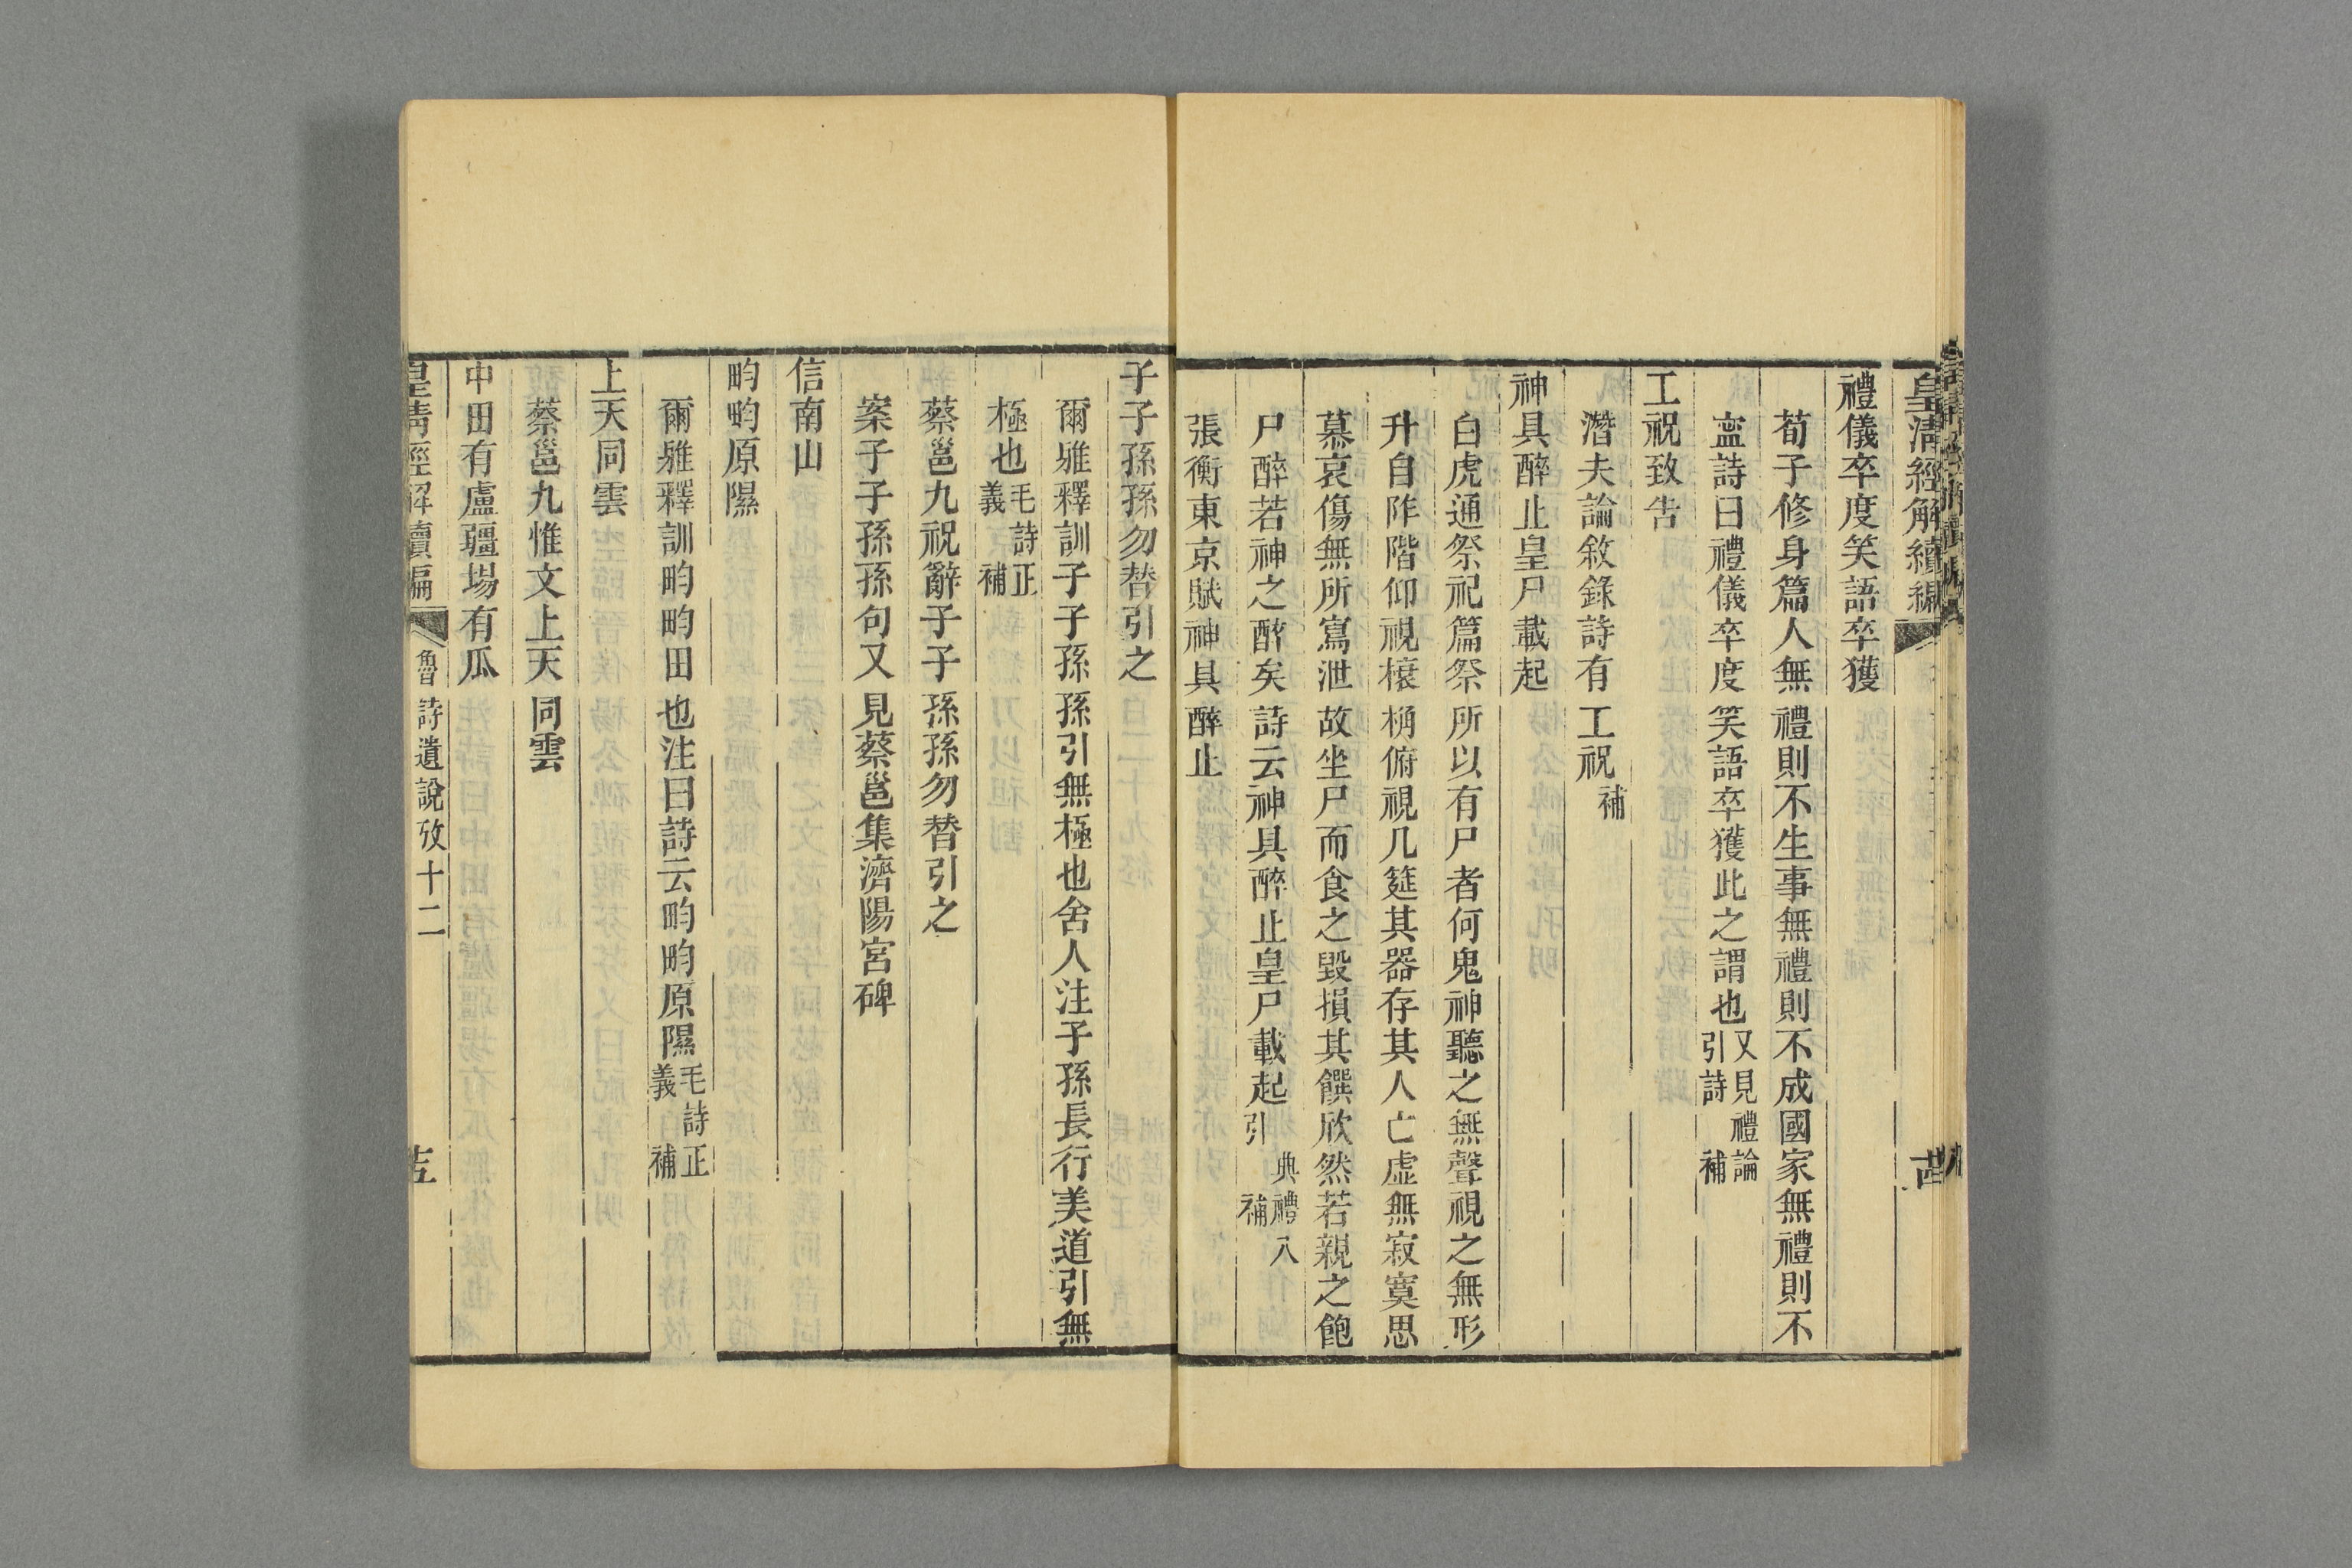 皇清經解續編
禮儀卒度笑語卒獲
荀子修身篇人無禮則不生事無禮則不成國家無禮則不
寍詩曰禮儀卒度笑語卒獲此之謂也又見禮論引詩補
工祝致告
潛夫論敘錄詩有工祝補
神具醉止皇尸載起
白虎通祭祀篇祭所以有尸者何鬼神聽之無聲視之無形
升自阼階仰視榱桷俯視几筵其器存其人亡虛無寂寞思
慕哀傷無所寫泄故坐尸而食之毀損其饌欣然若親之飽
尸醉若神之醉矣詩云神具醉止皇尸載起引典禮八補
張衡東京賦神具醉止
子子孫孫勿替引之
爾雅釋訓子子孫孫引無極也舍人注子孫長行美道引無
極也毛詩正義補
蔡邕九祝辭子子孫孫勿替引之
案子子孫孫句又見蔡邕集濟陽宮碑
信南山
畇畇原隰
爾雅釋訓畇畇田也注曰詩云畇畇原隰毛詩正義補
上天同雲
蔡邕九惟文上天同雲
中田有盧疆場有瓜
皇清經解續編 魯詩遺說攷十二